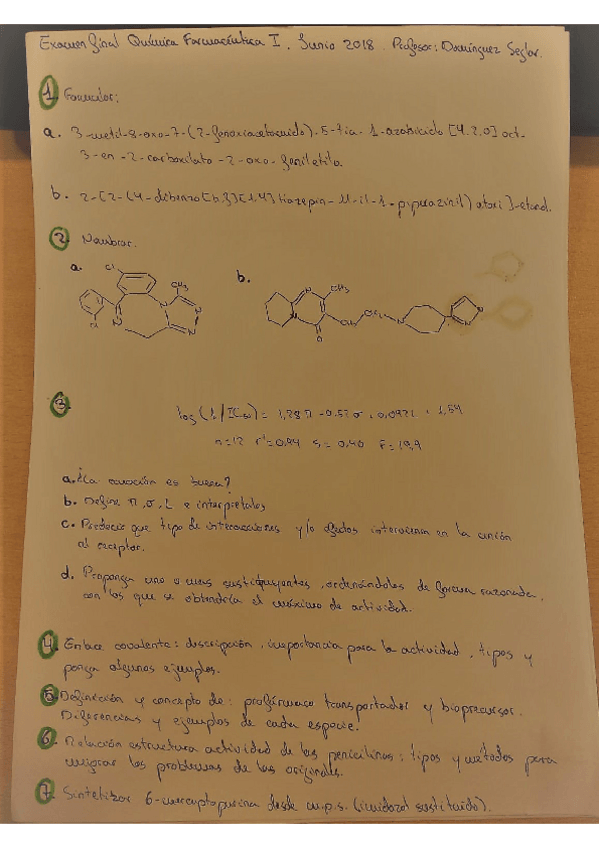 Examen final Química Farmacéutica I. Junio 2018. Profesor: Domínguez Seglar.
1. Formular:
a. 3-metil-8-oxo-7-(2-fenoxiacetamido)-5-tia-1-azabiciclo [4.2.0] oct-
3-en-2-carboxilato-2-oxo-feniletilo.
b. 2-[2-(4-dibenzo[b,f][1,4]tiazepin-11-il-1-piperazinil)etoxi]-etanol.
2. Nombrar.
a.
b.
Cl
CH3
N
N
N
N
Cl
N
CH3
N
O
CH2
CH2
N
3.
log(1/IC50) = 1,28 π - 0,52 σ + 0,092 L + 1,54
n=12 r²=0,94 s= 0,40 F=19,9
a. ¿La ecuación es buena?
b. Define π, σ, L e interprétalos
c. Predecir que tipo de interacciones y/o efectos intervienen en la unión
al receptor.
d. Proponga uno o más sustituyentes, ordenándolos de forma razonada,
con los que se obtendría el máximo de actividad.
4. Enlace covalente: descripción, importancia para la actividad, tipos y
ponga algunos ejemplos.
5. Definición y concepto de: profármaco transportador y bioprecursor.
Diferencias y ejemplos de cada especie.
6. Relación estructura actividad de las penicilinas: tipos y métodos para
mejorar los problemas de las originales.
7. Sintetizar 6-mercaptopurina desde m.p.s. (imidazol sustituido).